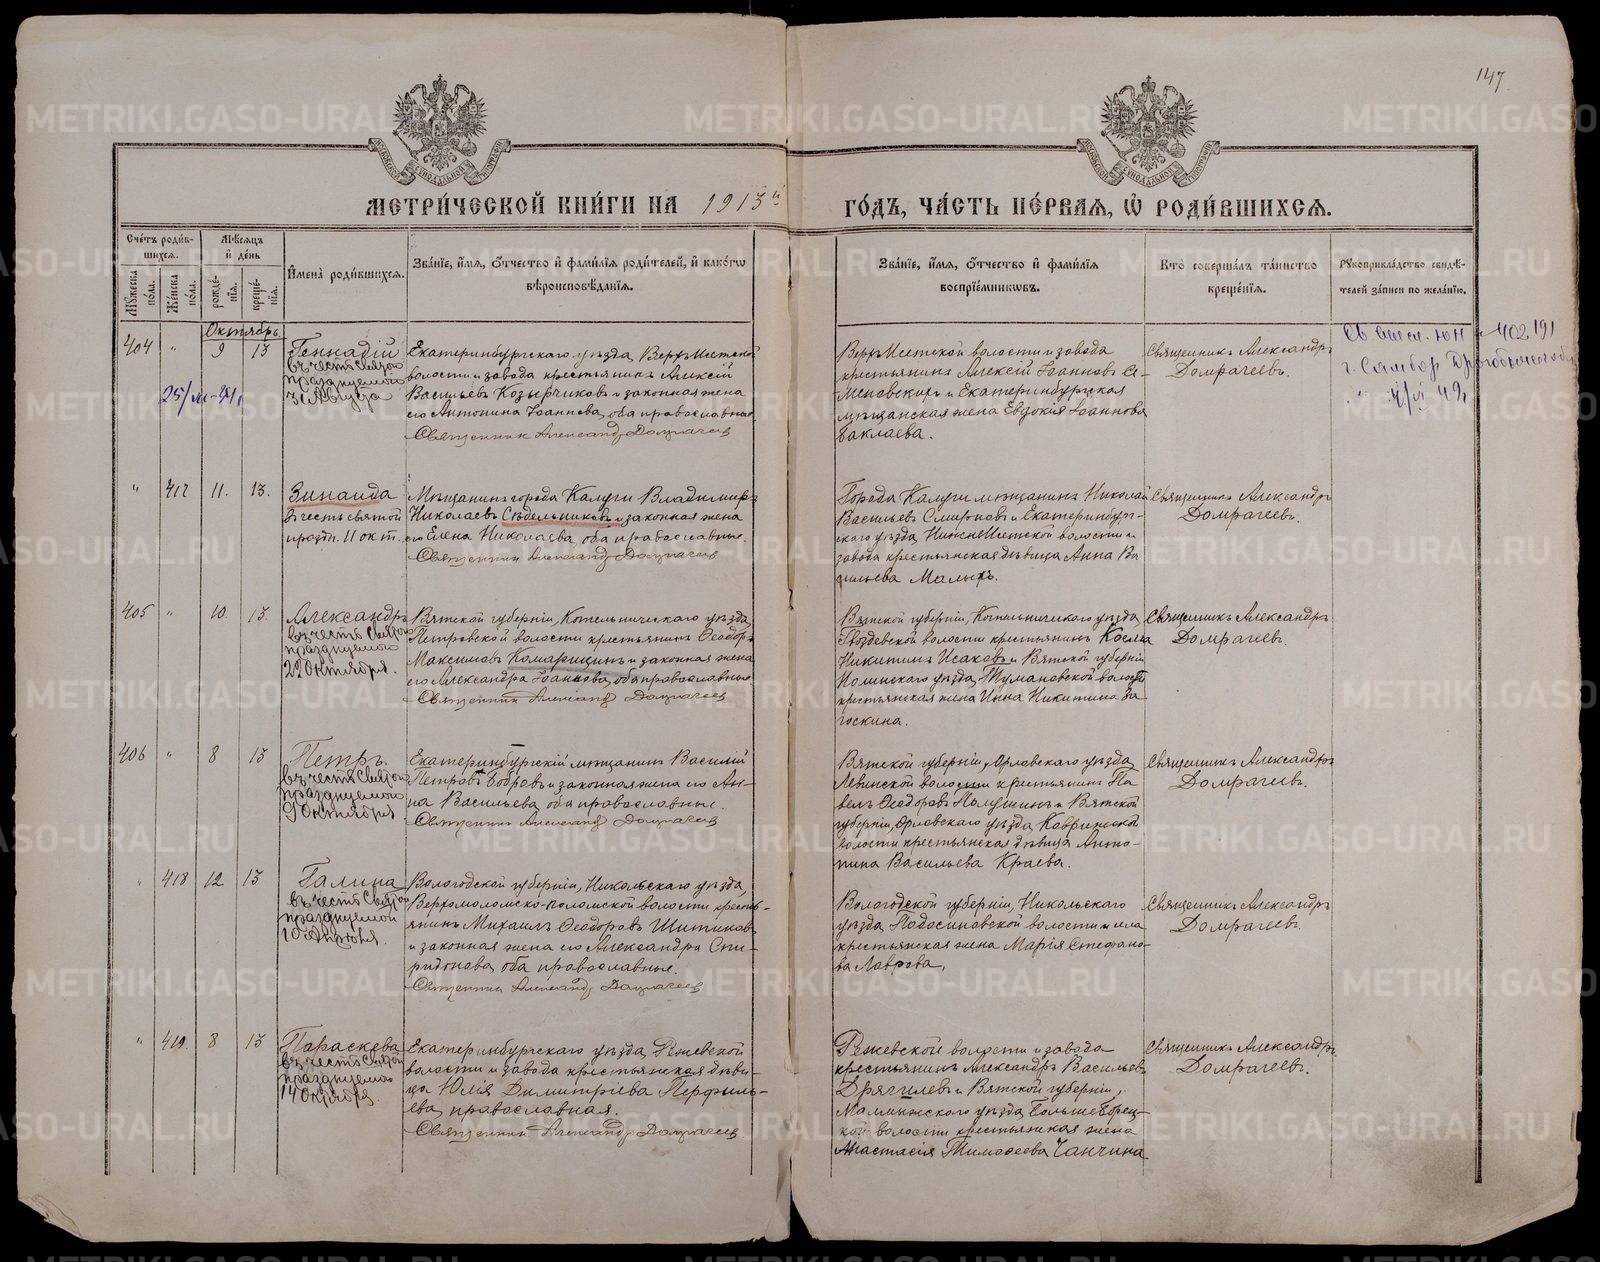 147
МЕТРИ́ЧЕСКОЙ КНИ́ГИ НА 1913й
ГО́ДЪ, ЧА́СТЬ ПЕ́РВАЯ, Ѡ РОДИ́ВШИХСЯ.
Сче́тъ роди́в-
шихся.
Му́жеска по́ла.
Же́нска по́ла.
Мѣ́сяцъ
и҆ де́нь
рожде́-
нїѧ.
креще́-
нїѧ.
И҆мена̀ роди́вшихся.
Зва́нїе, и҆́мя, ѻ҆́тчество и҆ фами́лїя роди́телей, и҆ како́гѡ
вѣроисповѣ́данїя.
Зва́нїе, и҆́мя, ѻ҆́тчество и҆ фами́лїя
воспрїе́мникѡвъ.
Кто̀ соверша́лъ та́инство
креще́нїя.
Рукоприкла́дство свидѣ́-
телей за́писи по жела́нїю.
Октябрь
404 " 9 13
Геннадій
въ честь Святого
празднуемого
31 Августа
Екатеринбургскаго уѣзда, Верхъ-Исетской
волости и завода крестьянинъ Алексій
Васильевъ Козырчиковъ и законная жена
его Антонина Іоаннова, оба православные.
Священник Александр Домрачеев
Верхъ-Исетской волости и завода
крестьянинъ Алексій Іоанновъ Се-
меновских и Екатеринбургская
мѣщанская жена Евдокія Іоаннова
Баклаева.
Священникъ Александръ
Домрачеевъ.
402191
г. Самбор Дрогобычской обл
" 417 11. 13.
Зинаида
в честь святой
праздн. 11 окт.
Мѣщанинъ города Калуги Владиміръ
Николаевъ Сѣдельниковъ и законная жена
его Елена Николаева, оба православные.
Священник Александр Домрачеев
Города Калуги мѣщанинъ Николай
Васильевъ Смирновъ и Екатеринбург-
скаго уѣзда, Нижне-Исетской волости и
завода крестьянская дѣвица Анна Ва
сильева Малыхъ.
Священникъ Александръ
Домрачеевъ.
405 " 10. 13.
Александръ
въ честь Святого
празднуемого
22 Октября.
Вятской губерніи, Котельническаго уѣзда,
Петровской волости крестьянинъ Ѳеодоръ
Максимовъ Комарицинъ и законная жена
его Александра Іоаннова, оба православные
Священник Александр Домрачеев
Вятской губерніи, Котельническаго уѣзда,
Гвоздевской волости крестьянинъ Косма
Никитинъ Исаковъ и Вятской губерніи
Нолинскаго уѣзда, Тумановской волости
крестьянская жена Инна Никитина За
госкина.
Священникъ Александръ
Домрачеевъ.
406 " 8 13
Петръ.
въ честь Святого
празднуемого
9 Октября
Екатеринбургскій мѣщанинъ Василій
Петровъ Бобровъ и законная жена его Ан-
на Васильева, оба православные.
Священник Александр Домрачеев
Вятской губерніи, Орловскаго уѣзда,
Левинской волости крестьянинъ Па
велъ Ѳеодоровъ Мамушинъ и Вятской
губерніи, Орловскаго уѣзда, Кавринской
волости крестьянская дѣвица Анто-
нина Васильева Краева.
Священникъ Александръ
Домрачеевъ.
" 418 12 13
Галина
въ честь Святой
празднуемой
10 Апрѣля.
Вологодской губерніи, Никольскаго уѣзда,
Верхомоломско-Поломской волости кресть-
янинъ Михаилъ Ѳеодоровъ Шитиковъ
и законная жена его Александра Спи-
ридонова, оба православные.
Священник Александр Домрачеев
Вологодской губерніи, Никольскаго
уѣзда, Подосиновской волости и села
крестьянская жена Марія Стефано-
ва Лаврова.
Священникъ Александръ
Домрачеевъ.
" 419. 8 13
Параскева
въ честь Святой
празднуемой
14 Октября.
Екатеринбургскаго уѣзда, Режевской
волости и завода крестьянская дѣви-
ца Юлія Димитріева Перфиль-
ева, православная.
Священник Александр Домрачеев
Режевской волости и завода
крестьянинъ Александръ Васильевъ
Дрягилевъ и Вятской губерніи,
Малмыжскаго уѣзда, Больше-Порец-
кой волости крестьянская жена
Анастасія Тимофеева Чанчина
Священникъ Александръ
Домрачеевъ.
METRIKI.GASO-URAL.RU